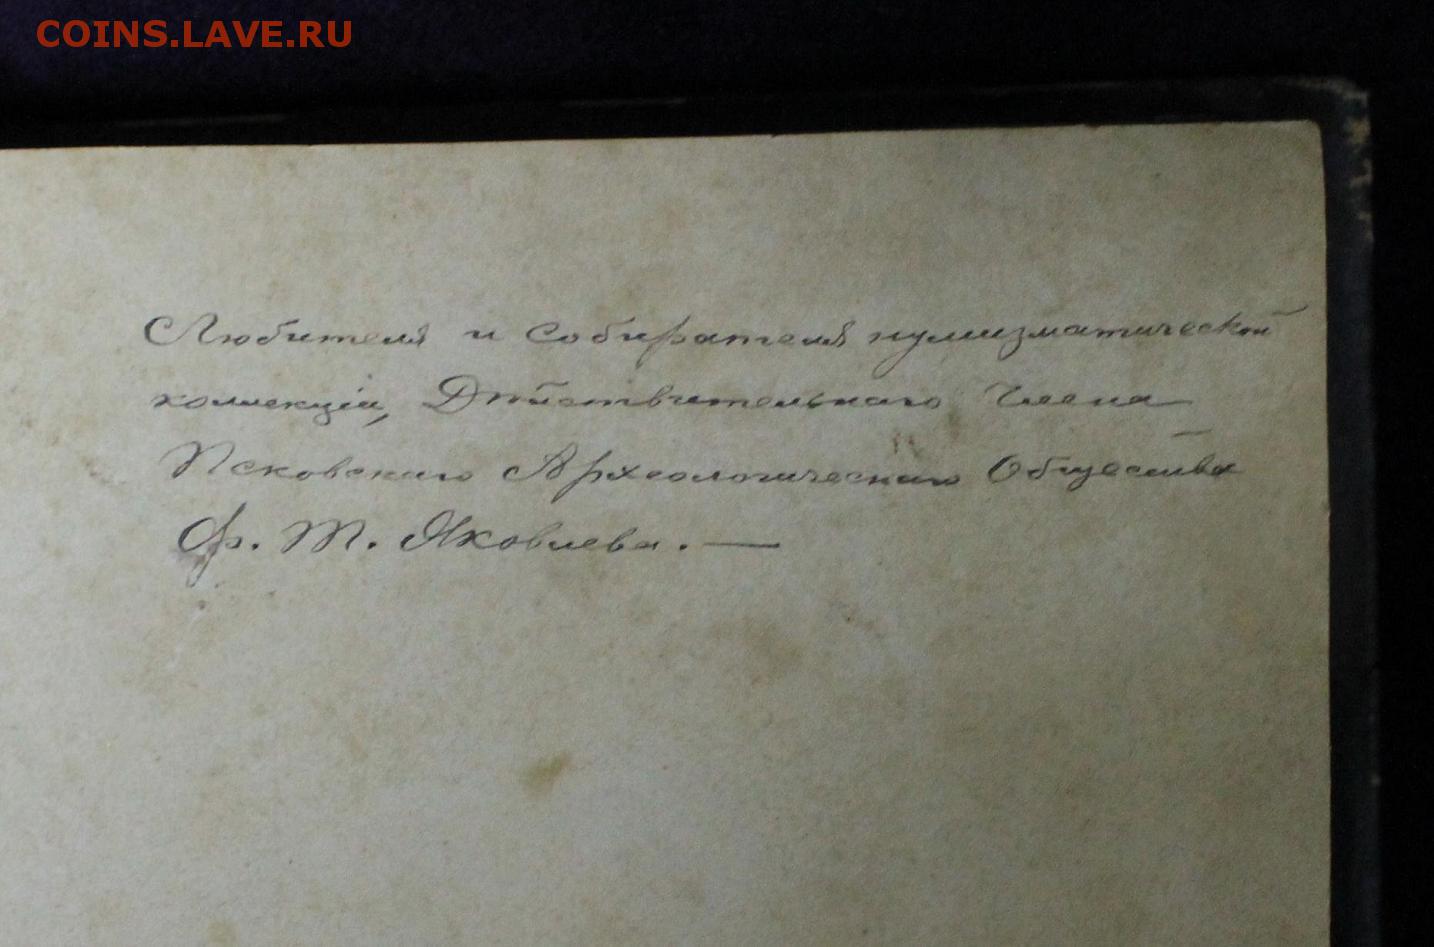 COINS.LAVE.RU
Любителя и собирателя нумизматической
коллекціи, Дѣйствительнаго Члена
Псковскаго Археологическаго Общества
Ф. Т. Яковлева. —